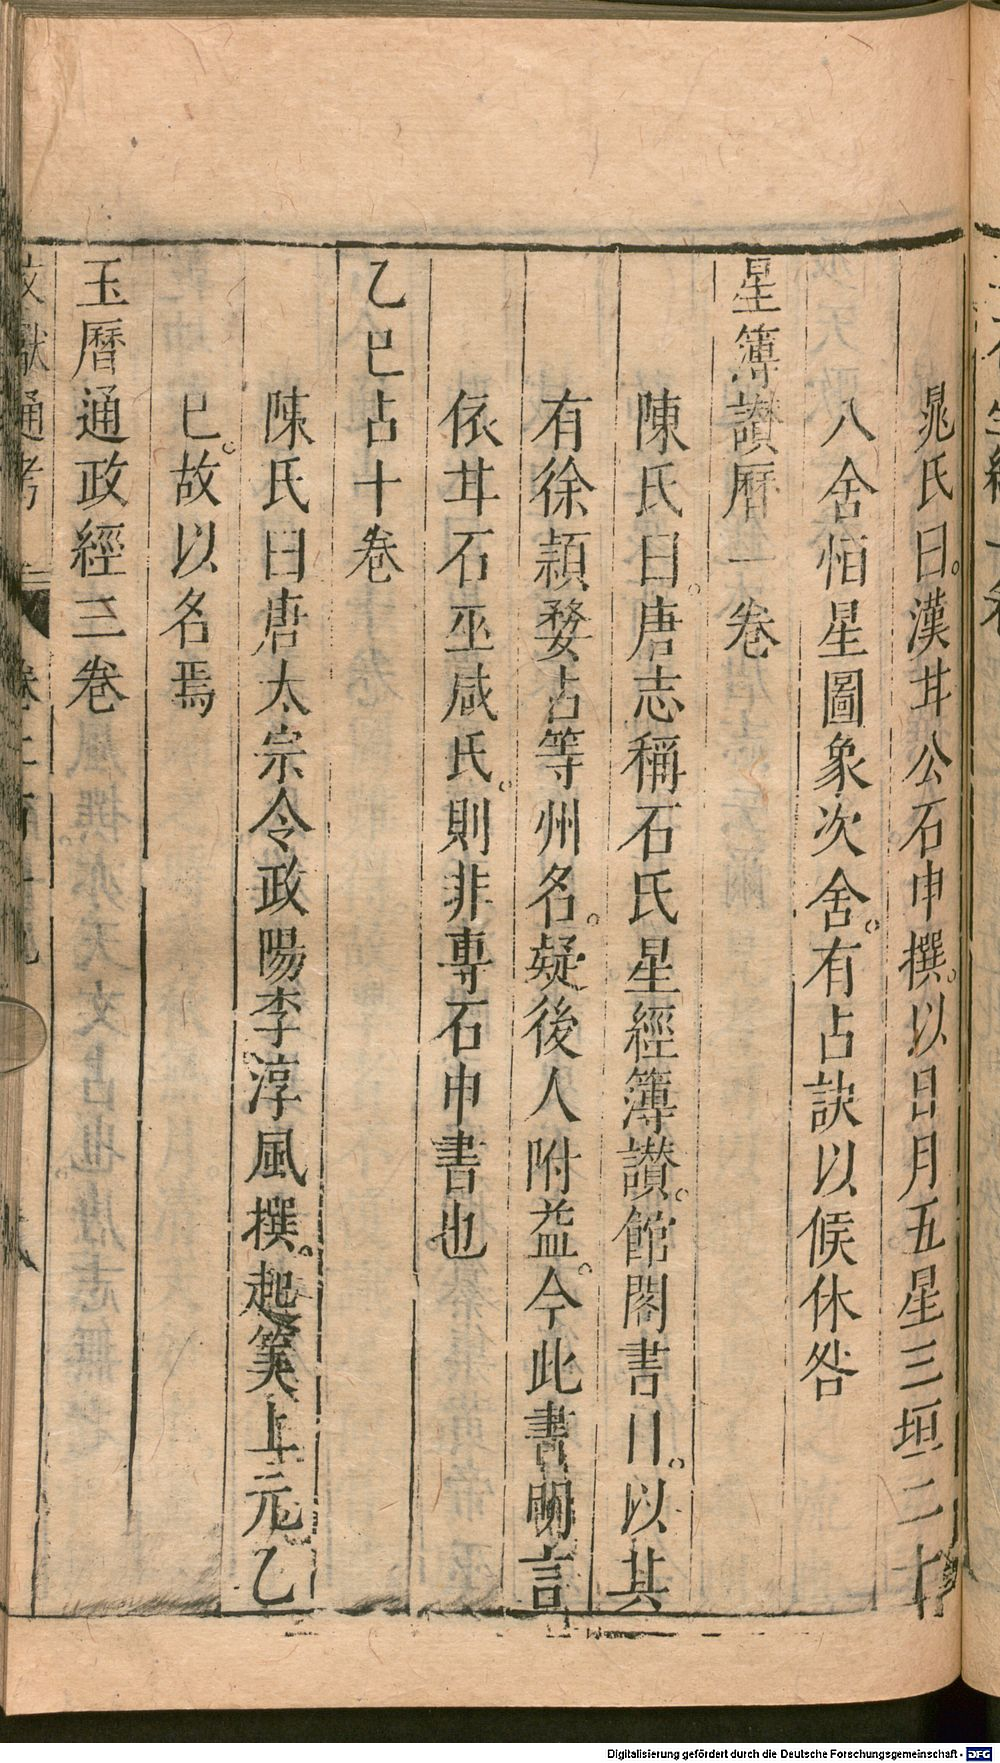 晁氏曰漢甘公石申撰以日月五星三垣二十
八舍恒星圖象次舍有占訣以候休咎
星簿讃曆一卷
陳氏曰唐志稱石氏星經簿讃館閣書目以其
有徐潁婺占等州名疑後人附益今此書明言
依甘石巫咸氏則非專石申書也
乙巳占十卷
陳氏曰唐太宗令政陽李淳風撰起筭上元乙
巳故以名焉
玉曆通政經三卷
文獻通考
Digitalisierung gefördert durch die Deutsche Forschungsgemeinschaft - DFG